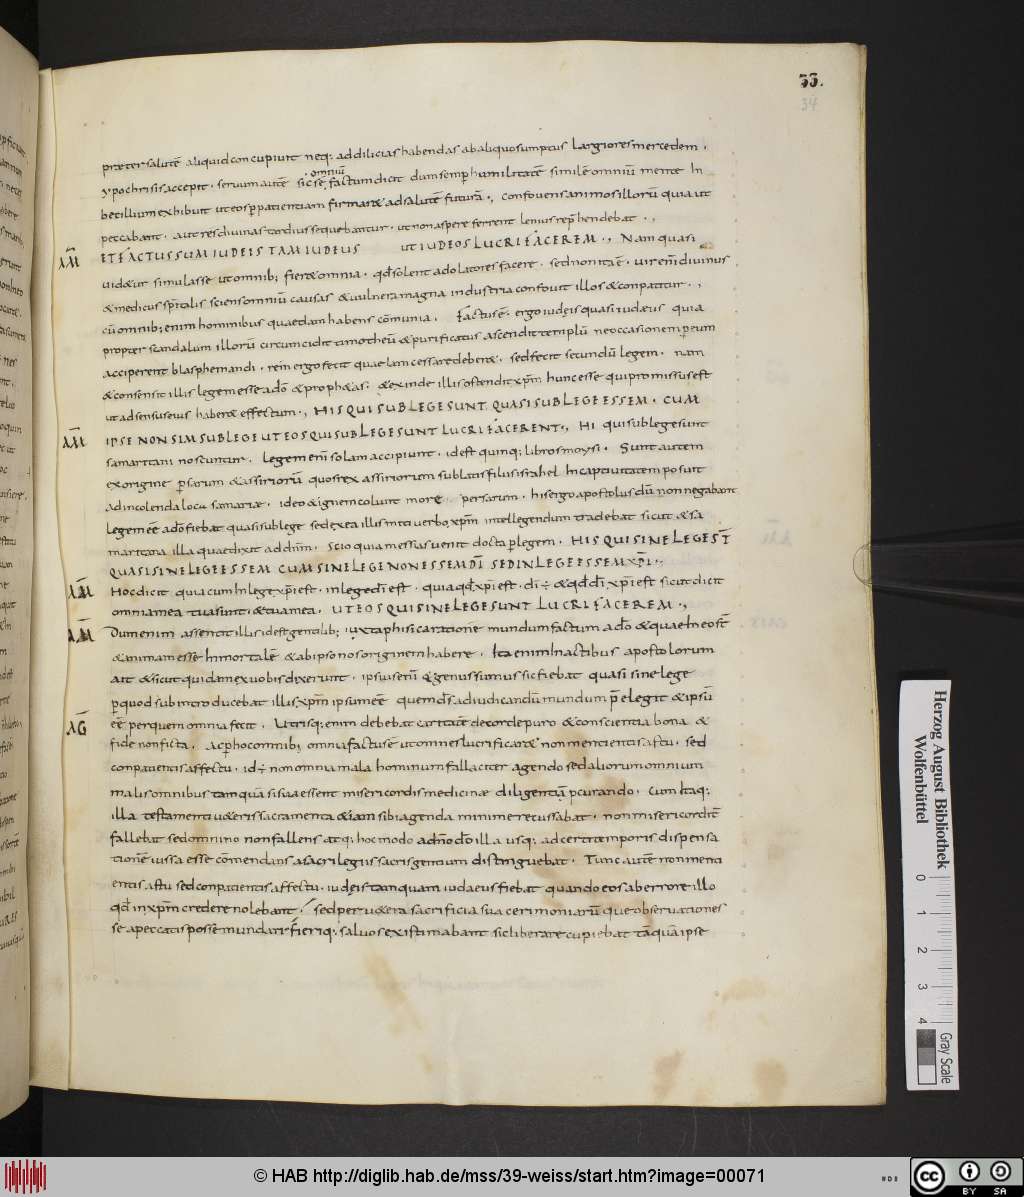 33.
34
praeter salutē aliquid concupiunt neq; addilicias habendas abaliquo sumptus Largiores mercedem.
ypochrisis accepit. seruum autē sic sē factum dicit dum semp humilitatē similē omniū mente In
omniū
becillium exhibuit ut eos p patientiam firmaret ad salutē futurā., confouens animos illorū quia ut
peccabant. aut res diuinas tardius sequebantur. ut non aspere ferrent lenius repħendebat.,
ETFACTUS SUM IUDEIS TAM IUDEUS UT IUDEOS LUCRIFACEREM., Nam quasi
AM
uidetur simulasse ut omnib; fieret omnia. qđ solent adolatores facere. sed non ita ē. uir enī diuinus
& medicus spitalis sciens omniū causas & uulnera magna industria confouit illos & conpatitur.,
cū omnib; enim hominibus quaedam habens cōmunia. Factus ē. ergo iudęis quasi iudaeus quia
propter scandalum illorū circumcidit timotheū & purificatus ascendit templū ne occasionem p eum
acciperent blasphemandi. rem ergo fecit quae iam cessare deberet. sed fecit secundū legem. nam
& consensit illis legem esse a dō & prophetas; & exinde illis ostendit xp̄m hunc esse qui promissus est
ut adsensus eius haberet effectum., HIS QUI SUB LEGE SUNT QUASI SUB LEGE ESSEM. CUM
AM
IPSE NON SIM SUB LEGE UT EOS QUI SUB LEGE SUNT LUCRIFACERENT., Hi qui sub lege sunt
samaritani noscuntur. Legem enī solam accipiunt. id est quinq; libros moysi. Sunt autem
ex origine persarum & assiriorū quos rex assiriorum sublatis filiis israhel In captiuitatem posuit
ad incolenda loca samariae. ideo & ignem colunt more persarum. his ergo apostolus dū non negabant
legem eē a dō fiebat quasi sub lege sed ex ea illis intro uerbo xp̄m intellegendum tradebat sicut & sa
maritana illa quae dixit ad dn̄m. scio quia messias uenit docta p legem. HIS QUI SINE LEGE ST̄
QUASI SINE LEGE ESSEM CUM SINE LEGE NON ESSEM DĪ SED IN LEGE ESSEM XP̄I.,
AM
Hoc dicit quia cum In lege xp̄i est. in lege dī est. quia qđ xp̄i est. dī ÷ & qđ dī; xp̄i est sicut dicit
omnia mea tua sunt. & tua mea. UT EOS QUI SINE LEGE SUNT LUCRIFACEREM.,
AM
Dum enim assentit illis id est gentilib; iuxta phisicā rationē mundum factum a dō & quae In eo st̄
& animam esse Inmortalē & ab ipso nos originem habere. Ita enim In actibus apostolorum
ait & sicut quidam ex uobis dixerunt. ipsius enī & genus sumus sic fiebat quasi sine lege
p quod subintroducebat illis; xp̄m ipsum eē quem dš ad iudicandū mundum p̄elegit & ipsū
AG
eē per quem omnia fecit. Utrisq; enim debebat caritatē de corde puro & conscientia bona &
fide non ficta. ac p hoc omnib; omnia factus ē ut omnes lucrificaret non mentientis astu. sed
conpatientis affectu. id ÷ non omnia mala hominum fallaciter agendo sed aliorum omnium
malis omnibus tamquā si sua essent misericordis medicinae diligentiā pcurando. Cum Itaq;
illa testamenti ueteris sacramenta etiam sibi agenda minime recussabat. non misericordit̄
fallebat sed omnino non fallens atq; hoc modo a dn̄o dō illa usq; ad certi temporis dispensa
tionē iussa esse cōmendans a sacrilegiis sacris gentium distinguebat. Tunc autē non menti
entis astu sed conpatientis affectu. iudęis tamquam iudaeus fiebat quando eos ab errore illo
qđ in xp̄m credere nolebant. sed per uetera sacrificia sua cerimoniarūque obseruationes
se a peccatis posse mundari fieriq; saluos existimabant sic liberare cupiebat tāquā ipse
Herzog August Bibliothek
Wolfenbüttel
0 1 2 3 4
Gray Scale
© HAB http://diglib.hab.de/mss/39-weiss/start.htm?image=00071
cc BY SA